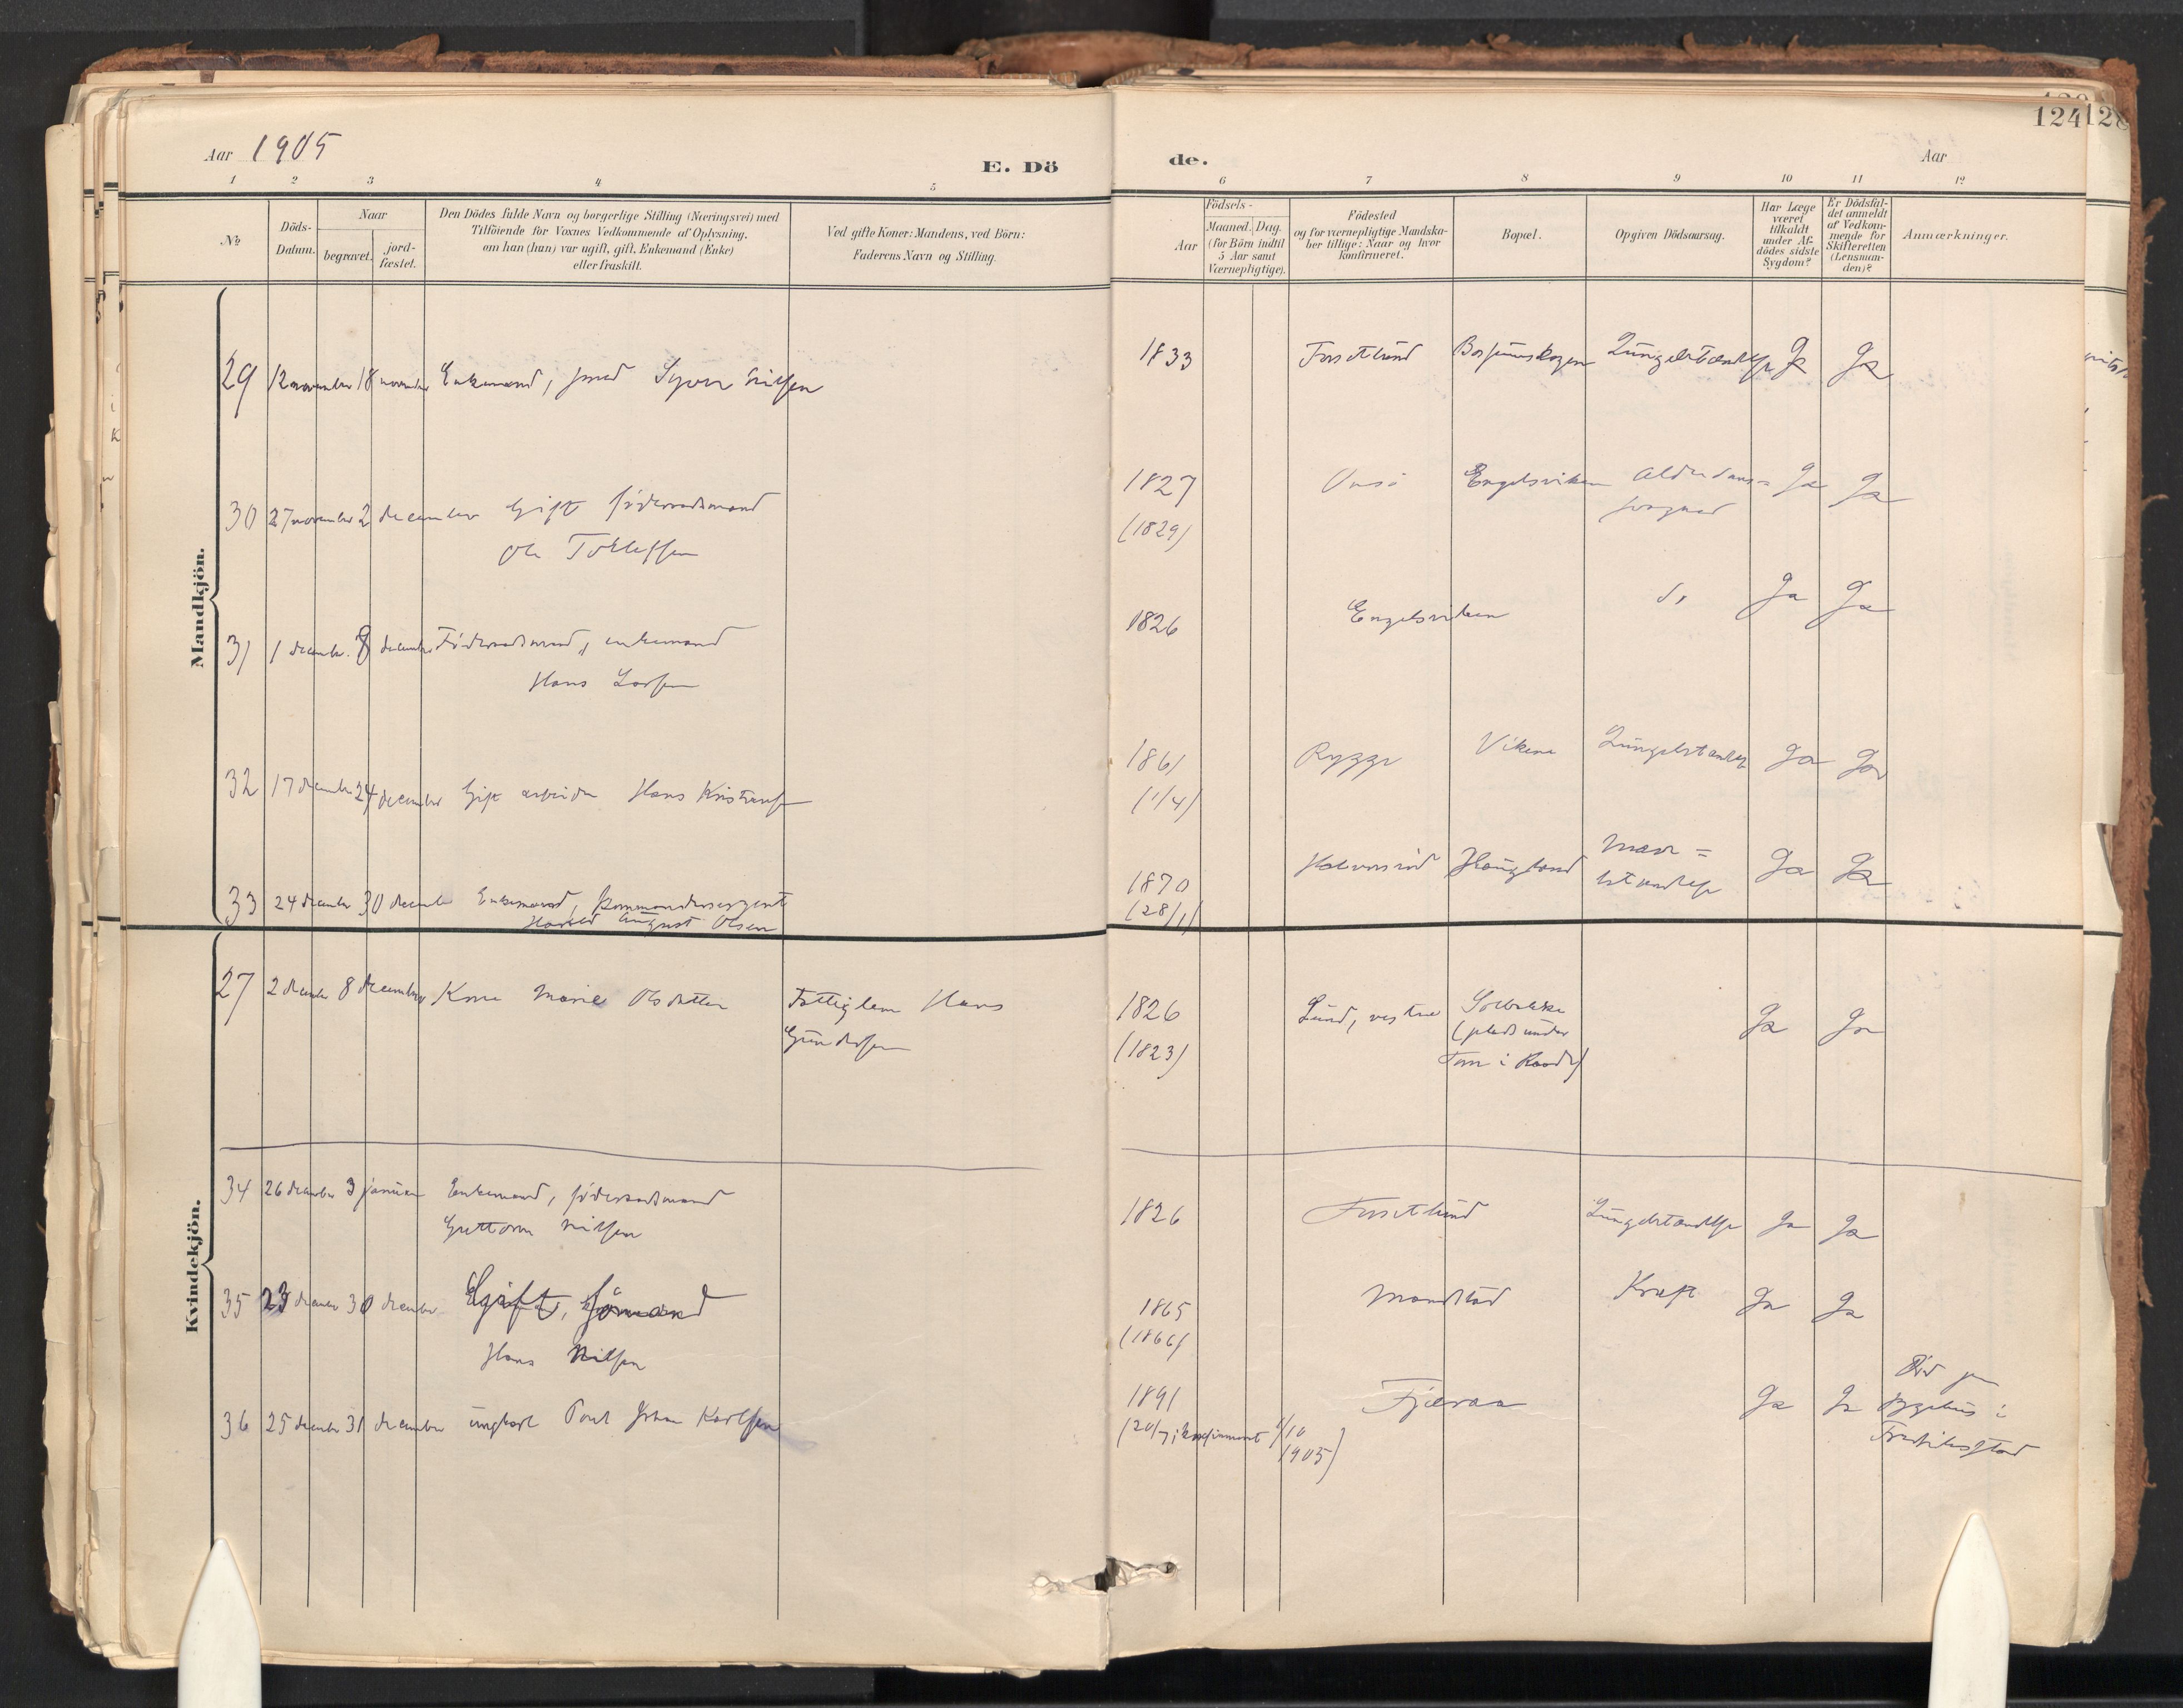 Aar 1905
E. Dö
de.
Aar
124
128
1 2 3 4 5 6 7 8 9 10 11 12
№
Döds-
Datum.
Naar
begravet.
jord-
fæstet.
Den Dödes fulde Navn og borgerlige Stilling (Næringsvei) med
Tilföiende for Voxnes Vedkommende af Oplysning,
om han (hun) var ugift, gift, Enkemand (Enke)
eller fraskilt.
Ved gifte Koner: Mandens, ved Börn:
Faderens Navn og Stilling.
Aar
Födsels-
Maaned. Dag.
(for Börn indtil
5 Aar samt
Værnepligtige).
Födested
og for værnepligtige Mandska-
ber tillige: Naar og hvor
konfirmeret.
Bopæl.
Opgiven Dödsaarsag.
Har Læge
været
tilkaldt
under Af-
dödes sidste
Sygdom?
Er Dödsfal-
det anmeldt
af Vedkom-
mende for
Skifteretten
(Lensman-
den)?
Anmærkninger.
Mandkjön.
29 12 november 18 november Enkemand, Syver Nilsen 1833 Fusetlund Lungebetændelse Ja Ja
30 27 november 2 december Gift föderaadsmand 1827 Onsö Engelsviken Alderdoms= Ja Ja
Ole Tollefsen (1829)
31 1 december 8 december Föderaadsmand, enkemand 1826 Engelsviken do Ja Ja
Hans Larsen
32 17 december 24 december Gift arbeider Hans Kristiansen 1861 Rygge Vikene Lungebetændelse Ja Ja
(1/4)
33 24 december 30 december Enkemand, kommandersergent 1870 Halvorsröd Haugland Mave= Ja Ja
Harald August Olsen (28/1) betændelse
Kvindekjön.
27 2 december 8 december Kone Marie Olsdatter Fattiglem Hans 1826 Lund, vestre Solbakke Ja Ja
Gundersen (1823) (plads under
Tom i Raade)
34 26 december 3 januar Enkemand, föderaadsmand 1826 Fusetlund Lungebetændelse Ja Ja
Guttorm Nilsen
35 23 december 30 december Ugift, sömand 1865 Mandstad Kræft Ja Ja
Hans Nilsen (1866)
36 25 december 31 december ungkarl Poul Johan Karlsen 1891 Fjæraa Ja Ja Död paa
(20/7; konfirmert 1/10 sygehus i
1905) Fredrikstad